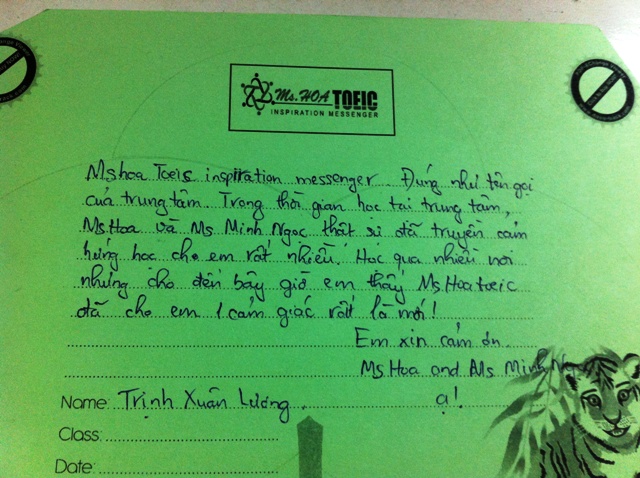 Ms. HOA TOEIC
INSPIRATION MESSENGER
Ms hoa Toeic inspiration messenger. Đúng như tên gọi
của trung tâm. Trong thời gian học tại trung tâm,
Ms Hoa và Ms Minh Ngọc thật sự đã truyền cảm
hứng học cho em rất nhiều. Học qua nhiều nơi
nhưng cho đến bây giờ em thấy Ms Hoa toeic
đã cho em 1 cảm giác rất là mới!
Em xin cảm ơn.
Ms Hoa and Ms Minh Ng
ạ!
Name: Trịnh Xuân Lương
Class:
Date: